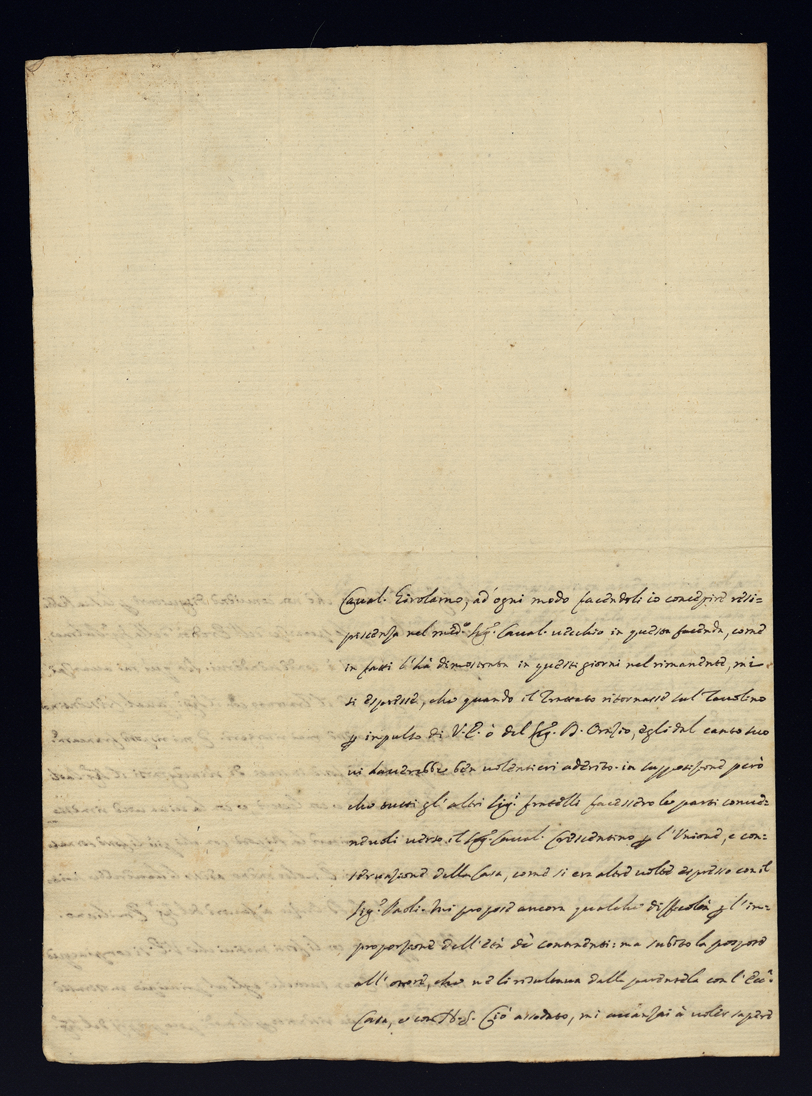 Caval. Girolamo, ad' ogni modo facendoli io concepire resi=
piscenza nel med.º Sig.r Caval. uecchio in questa facenda, come
in fatti l'hà dimostrata in questi giorni nel rimanente, mi
si espresse, che quando il Trattato ritornasse sul Tauolino
p impulso di V.E. ò del Sig.r D. Orazio, egli dal canto suo
ui hauerebbe ben uolentieri aderito. in supposizione però
che tutti gl' altri Sig.ri fratelli facessero le parti conue=
neuoli uerso il Sig.r Caual. Crescentino p l'Unione, e con=
seruazione della Casa, come si era altre uolte espresso con il
Sig.r Paoli. Mi propose ancora qualche difficoltà p l'im=
proporzione dell' età de contraenti: ma subito la pospose
all' onore, che ne li risultaua dalla parentela con l' Ecc.ma
Casa, e con Ciò assodato, mi auanzai à uoler sapere